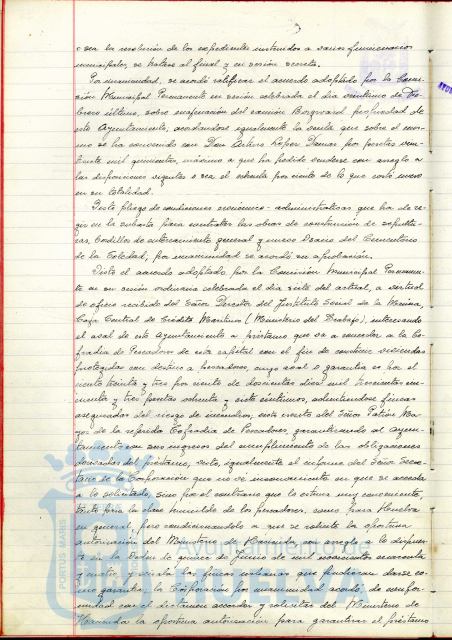 o sea la resolución de los expedientes instruidos a varios funcionarios
municipales, se tratase al final y en sesión secreta.
Por unanimidad, se acordó ratificar el acuerdo adoptado por la Comi-
sión Municipal Permanente en sesión celebrada el día veintiuno de Fe-
brero último, sobre enajenación del camión Borgward propiedad de
este Ayuntamiento, acordándose igualmente la venta que sobre el mis-
mo se ha convenido con Don Arturo López Damas por pesetas
mil quinientas, máximo a que ha podido venderse con arreglo a
las disposiciones vigentes o sea el ochenta por ciento de lo que costó nuevo
en su totalidad.
Visto pliego de condiciones económico-administrativas que ha de re-
gir en la subasta para contratar las obras de construcción de sepultu-
ras, bordillos de enterramiento general y del Cementerio
de la Soledad, por unanimidad se acordó su aprobación.
Visto el acuerdo adoptado por la Comisión Municipal Permanen-
te en su sesión ordinaria celebrada el día siete del actual, a virtud
de oficio recibido del Señor Director del Instituto Social de la Marina,
Caja Central de Crédito Marítimo (Ministerio del Trabajo), interesando
el aval de este Ayuntamiento a préstamo que va a conceder a la Co-
fradía de Pescadores de esta capital con el fin de construir viviendas
protegidas con destino a pescadores, cuyo aval o garantía es por el
ciento treinta y tres por ciento de doscientas diez mil trescientas cin-
cuenta y tres pesetas ochenta y siete céntimos, admitiéndose fincas
aseguradas del riesgo de incendios, visto escrito del Señor Patrón Ma-
yor de la referida Cofradía de Pescadores, garantizando al Ayun-
tamiento con sus ingresos del incumplimiento de las obligaciones
del préstamo, visto, igualmente el informe del Señor Secre-
tario de la Corporación que no ve inconveniente en que se acceda
a lo solicitado, sino por el contrario que lo estima muy conveniente,
tanto para la clase humilde de los pescadores, como para Huelva
en general, pero condicionándolo a que se solicite la oportuna
autorización del Ministerio de Hacienda, con arreglo a lo dispues-
to en la Orden de quince de Junio de mil novecientos cuarenta
y cuatro, y las fincas urbanas que pudieran darse co-
mo garantía, la Corporación por unanimidad acordó, de confor-
midad con el dictamen acceder y solicitar del Ministerio de
Hacienda la oportuna autorización para garantizar el préstamo
PORTUS MARIS